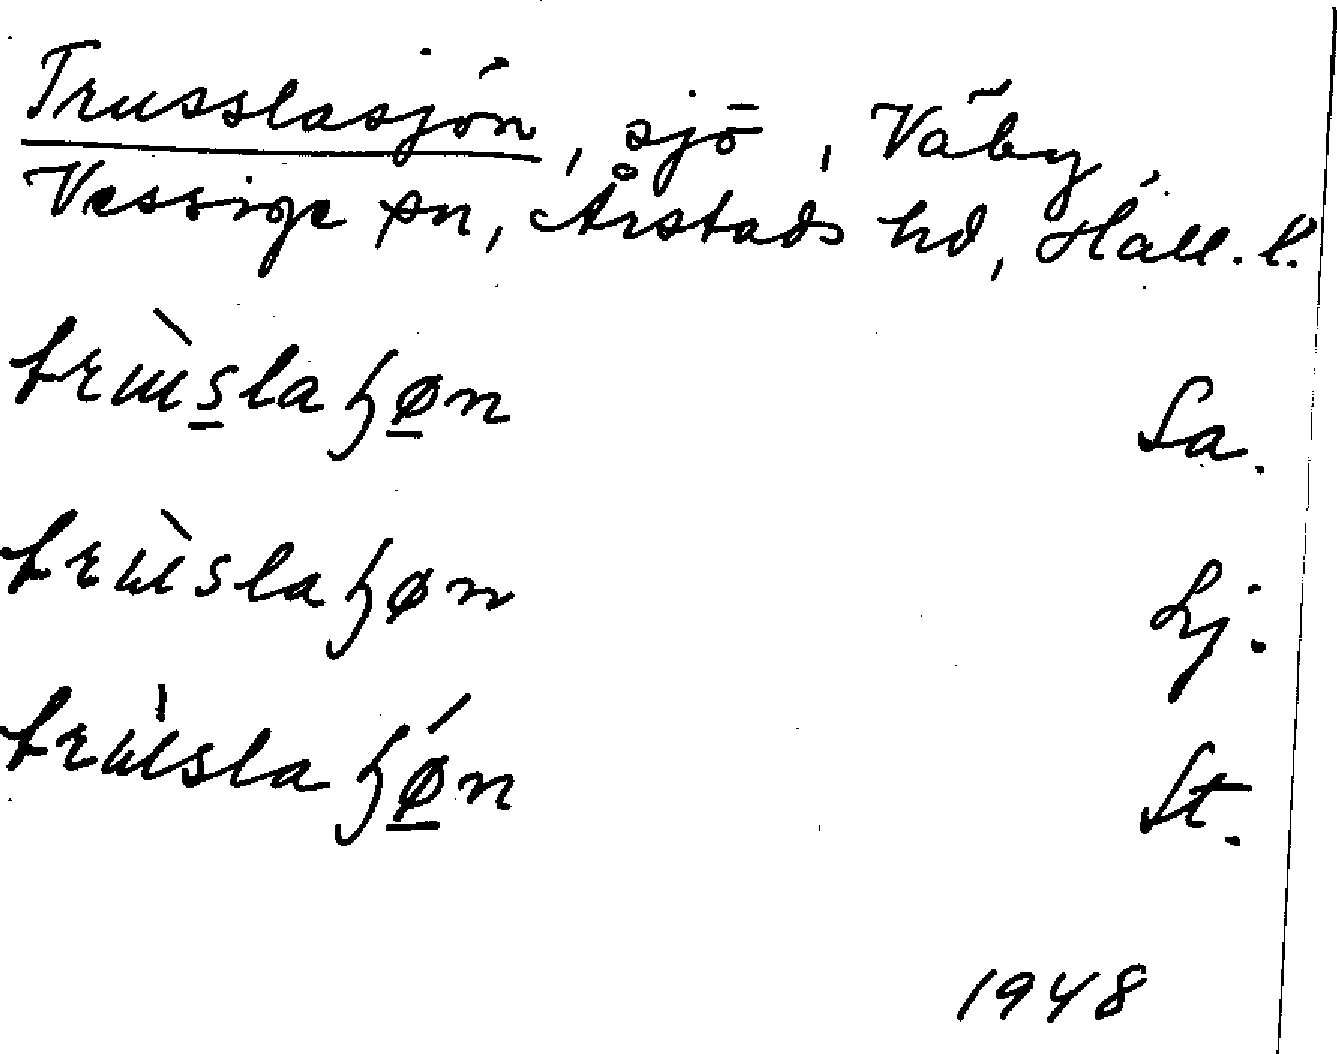 Trusslasjön, sjö, Väby
Vessige sn, Årstads hd, Hall. l.
trùs̲laɧø̲n Sa.
trùslaɧøn Lj.
trùslaɧǿ̲n St.
1948